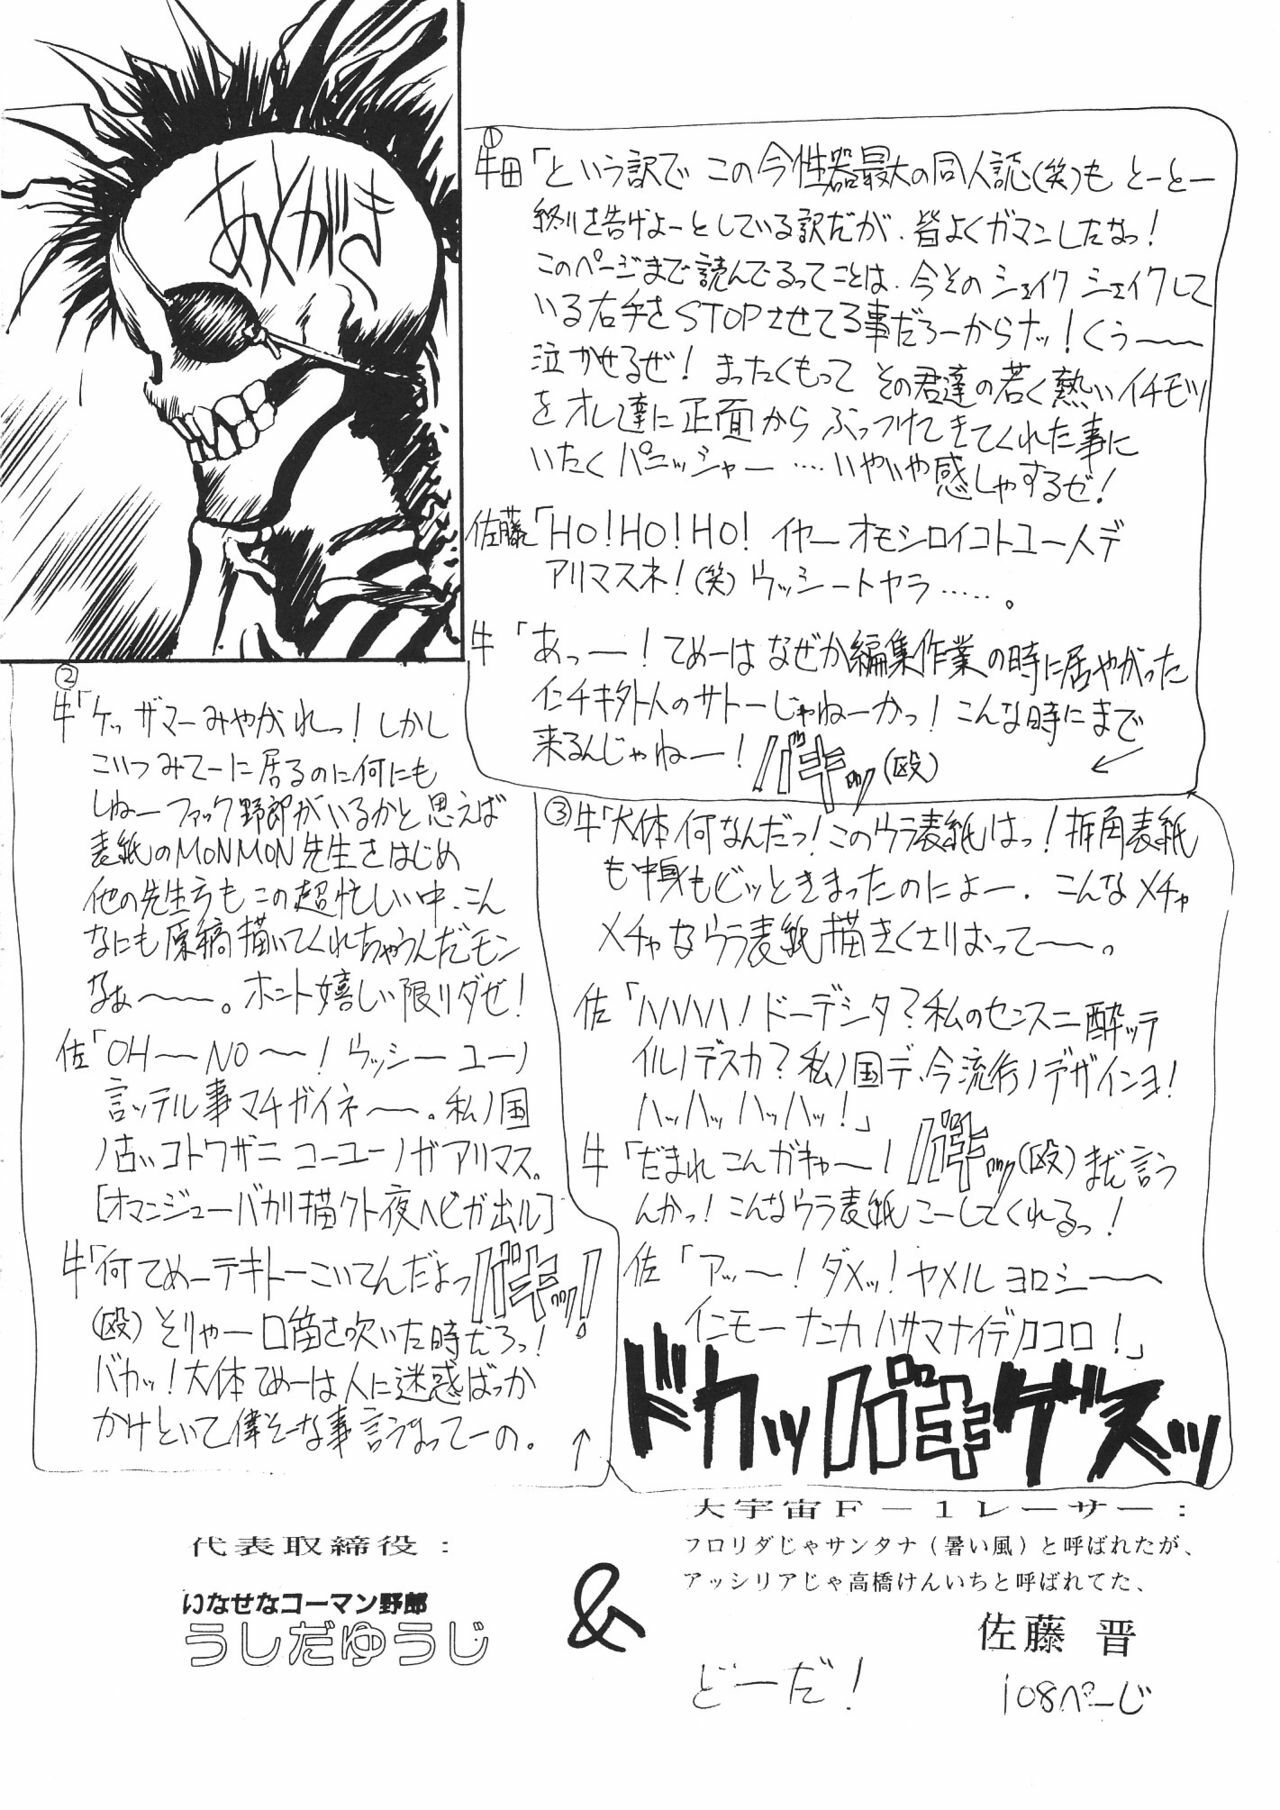 あとがき
①
牛田「という訳で この今性器最大の同人誌(笑)も とーとー
終りを告げよーとしている訳だが、皆よくガマンしたなっ!
このページまで読んでるってことは、今そのシェイク シェイクして
いる右手をSTOPさせてる事だろーからナッ!くぅ〜〜
泣かせるぜ! まったくもって その君達の若く熱いイチモツ
をオレ達に正面からぶっつけてきてくれた事に
いたくパニッシャー ‥‥いやいや感しゃするぜ!
佐藤「HO!HO!HO! イヤー オモシロイコトユー人デ
アリマスネ!(笑)ウッシートヤラ‥‥‥。
牛「あっー!てめーはなぜか編集作業の時に居やがった
インチキ外人のサトーじゃねーかっ!こんな時にまで
来るんじゃねー! バキッ(殴)
②
牛「ケッ ザマーみやがれっ!しかし
こいつみてーに居るのに何にも
しねーファック野郎がいるかと思えば
表紙のMONMON先生をはじめ
他の先生方もこの超忙しい中、こん
なにも原稿描いてくれちゃうんだモン
なぁ〜〜。ホント嬉しい限りダゼ!
佐「OH〜NO〜!ウッシー ユーノ
言ッテル事マチガイネ〜。私ノ国
ノ古いコトワザニ コーユーノガアリマス。
[オマンジューバカリ描クト夜ヘビガ出ル]
牛「何てめーテキトーこいてんだよっ バキッ!
(殴)そりゃー口笛を吹いた時だろっ!
バカッ!大体てめーは人に迷惑ばっか
かけといて偉そーな事言うなってーの。
③
牛「大体何なんだっ!このウラ表紙はっ!折角表紙
も中身もビッときまったのによー、こんなメチャ
メチャなウラ表紙描きくさりおって〜〜。
佐「ハハハハ!ドーデシタ?私のセンスニ酔ッテ
イルノデスカ?私ノ国デ、今流行ノデザインヨ!
ハッハッハッハッ!」
牛「だまれこんガキゃ〜! バキッ(殴)まだ言う
んかっ!こんなウラ表紙こーしてくれるっ!
佐「アッ〜!ダメッ!ヤメル ヨロシ〜〜
インモーナンカハサマナイデクロロ!」
ドカッ バキ ゲスッ
代表取締役:
いなせなコーマン野郎
うしだゆうじ
&
大宇宙F-1レーサー:
フロリダじゃサンタナ(暑い風)と呼ばれたが、
アッシリアじゃ高橋けんいちと呼ばれてた、
佐藤 晋
どーだ!
108ページ